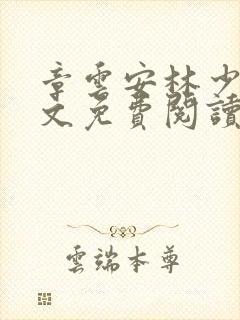 章雲安林少
文免費閱讀
雲端本尊